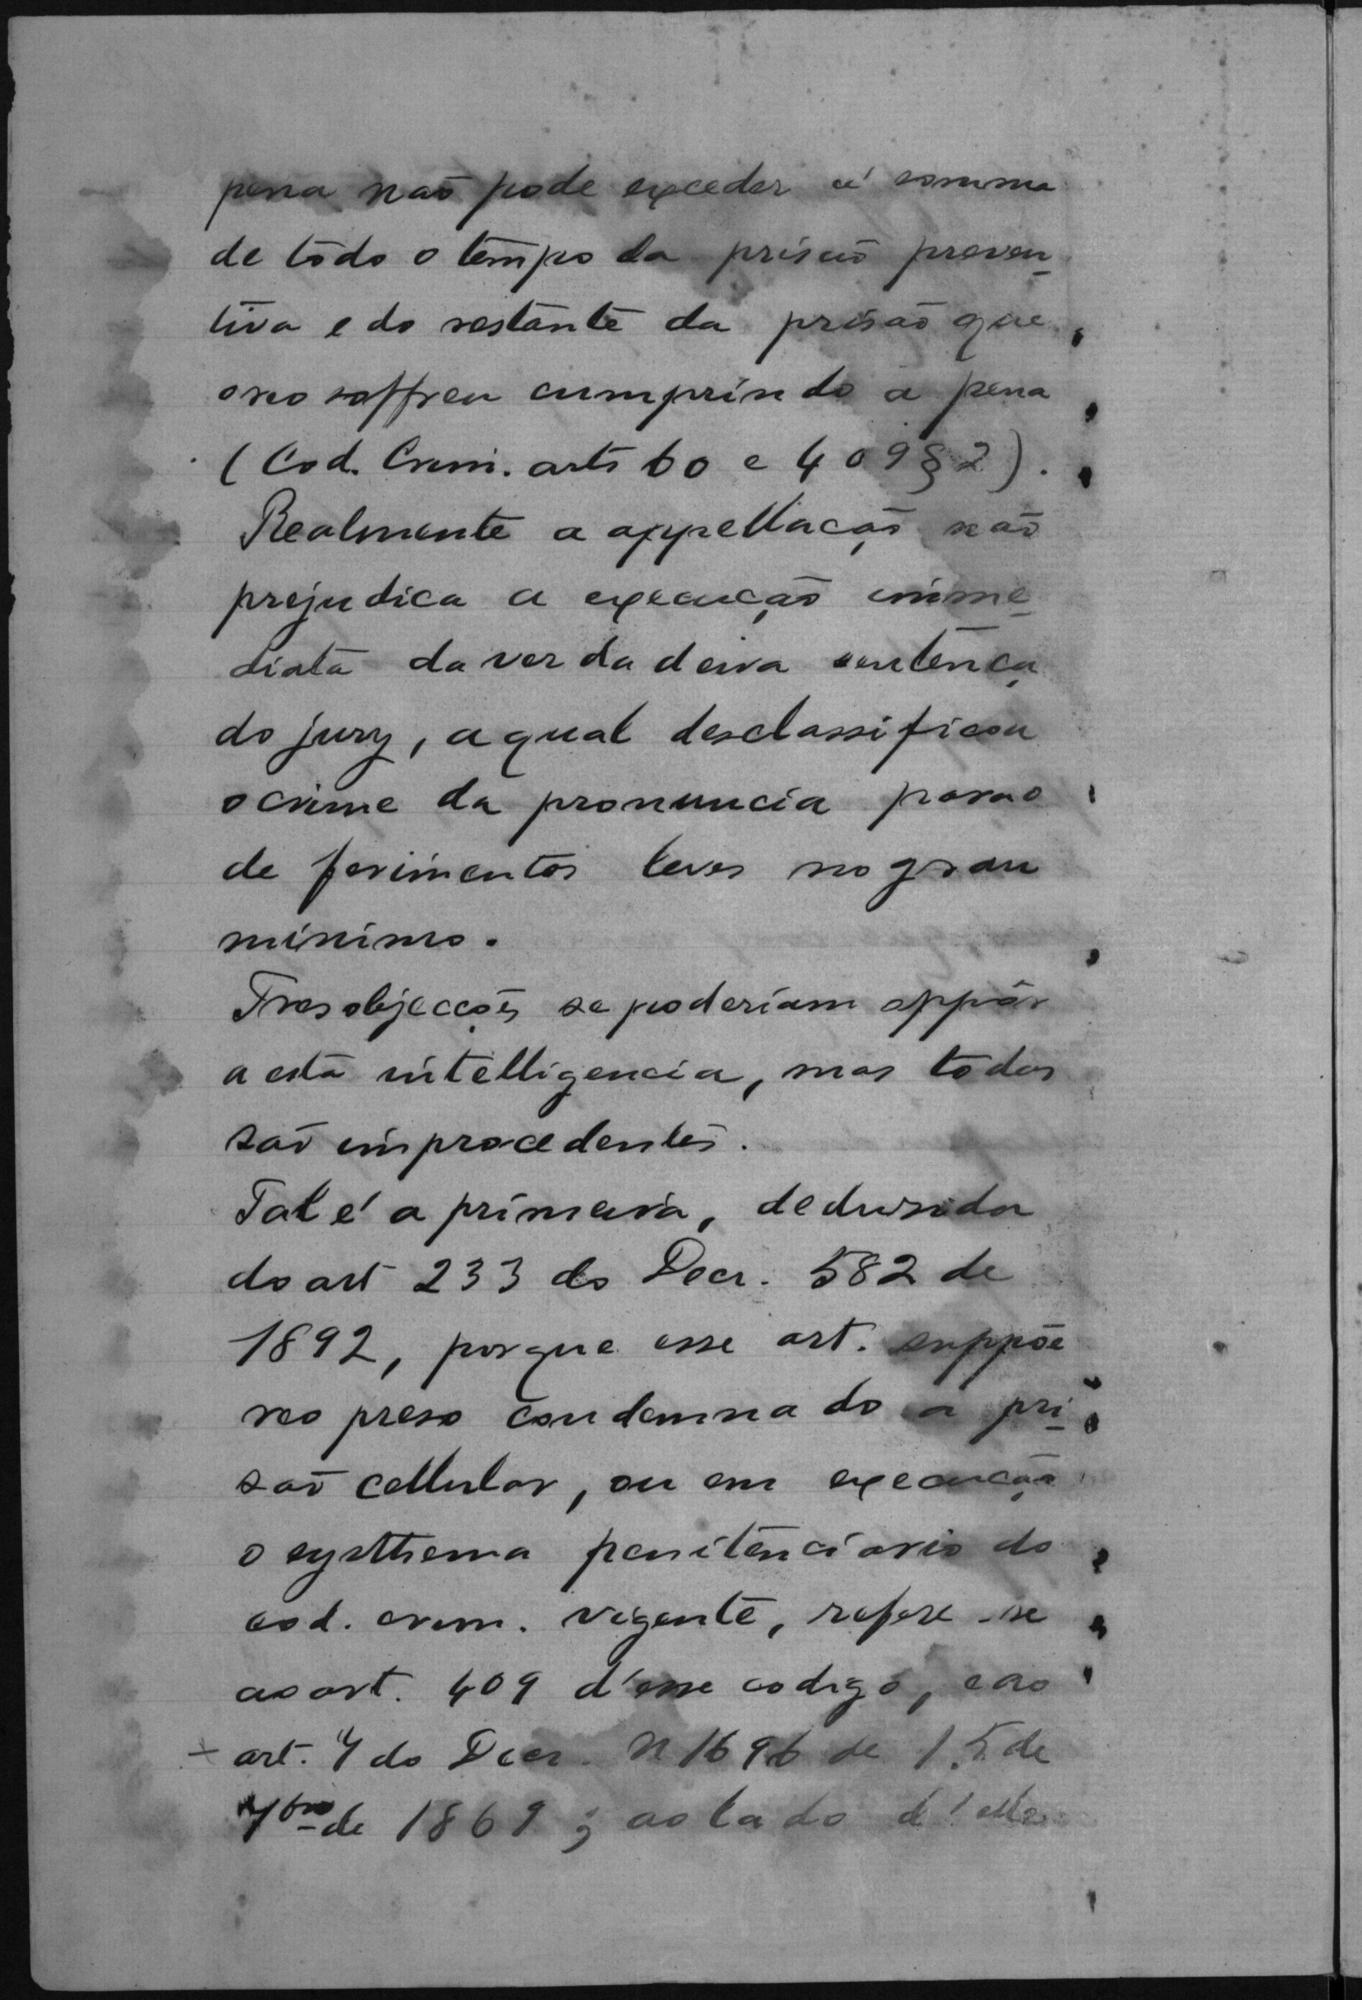 pena não pode exceder á somma
de todo o tempo da prisão preven-
tiva e do restante da prisão que
o reo soffreu cumprindo a pena
(Cod. Crim. arts 60 e 409 § 2).
Realmente a appellação não
prejudica a execução imme-
diata da verdadeira sentença
do jury, a qual desclassificou
o crime da pronuncia para o
de ferimentos leves no grau
minimo.
Tres objecções se poderiam oppôr
a esta intelligencia, mas todas
são improcedentes.
Tal é a primeira, dedusida
do art 233 do Decr. 582 de
1892, porque esse art. suppõe
reo preso condemnado a pri-
são cellular, ou em execução
o systhema penitenciario do
cod. crim. vigente, refere-se
ao art. 409 d'esse codigo, e ao
art. 4 do Decr. N 1696 de 15 de
7bro de 1869; ao lado d'elle